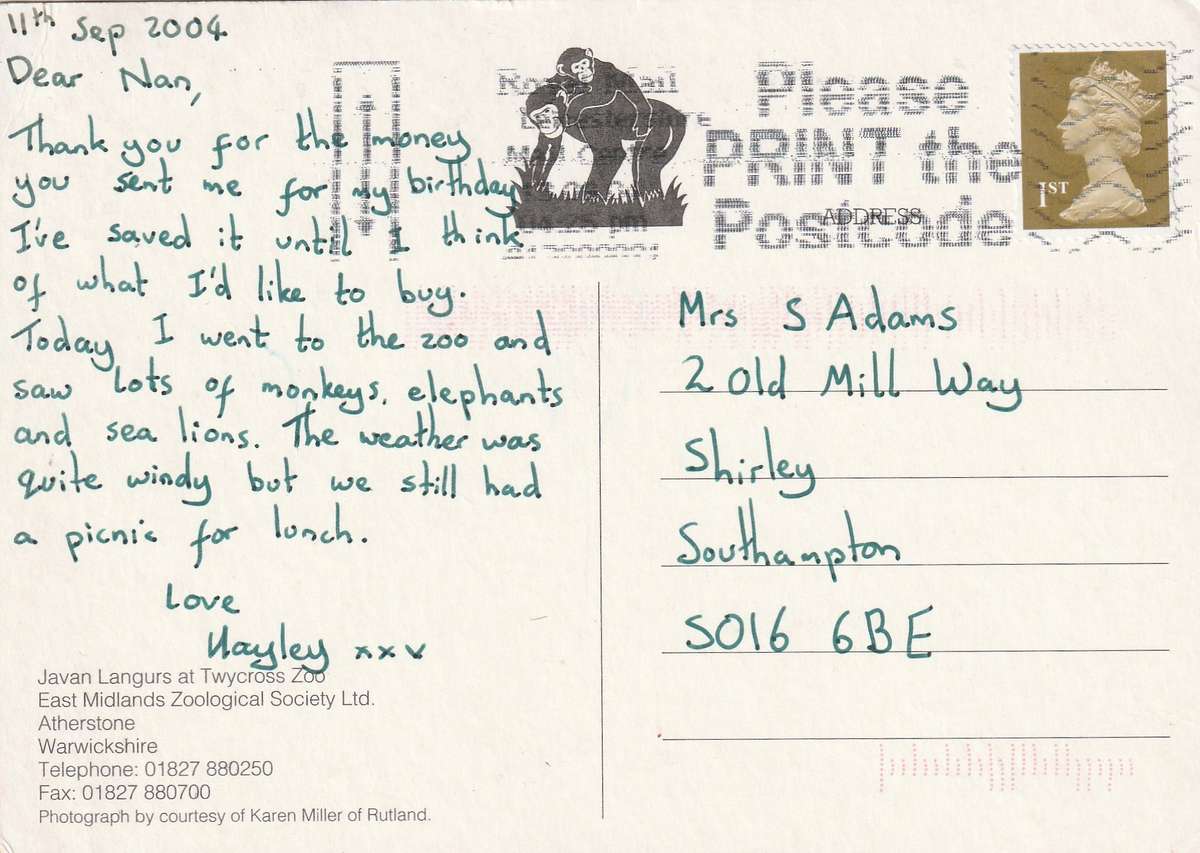 11th Sep 2004
Dear Nan,
Thank you for the money
you sent me for my birthday
I've saved it until I think
of what I'd like to buy.
Today I went to the zoo and
saw lots of monkeys, elephants
and sea lions. The weather was
quite windy but we still had
a picnic for lunch.
Love
Hayley xxx
Javan Langurs at Twycross Zoo
East Midlands Zoological Society Ltd.
Atherstone
Warwickshire
Telephone: 01827 880250
Fax: 01827 880700
Photograph by courtesy of Karen Miller of Rutland.
Royal Mail
Please
PRINT the
Postcode
1ST
ADDRESS
Mrs S Adams
2 Old Mill Way
Shirley
Southampton
SO16 6BE